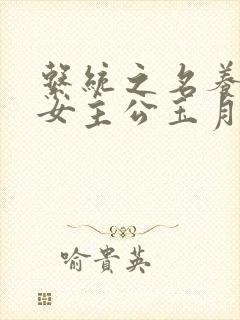 繫統之名養
女主公玉月
喻貴英